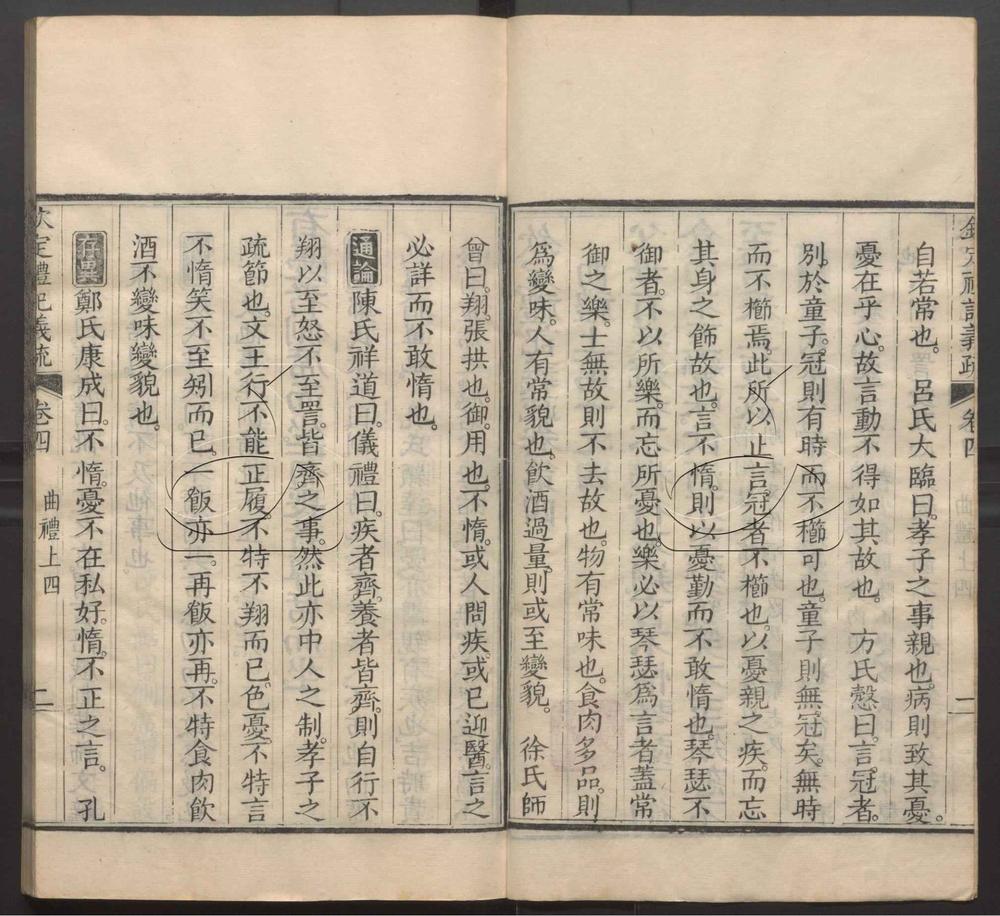 欽定禮記義疏 卷四 曲禮上四 二
自若常也。 呂氏大臨曰。孝子之事親也。病則致其憂。
憂在乎心。故言動不得如其故也。 方氏慤曰。言冠者。
別於童子。冠則有時而不櫛可也。童子則無冠矣。無時
而不櫛焉。此所以止言冠者不櫛也。以憂親之疾。而忘
其身之飾故也。言不惰。則以憂勤而不敢惰也。琴瑟不
御者。不以所樂。而忘所憂也。樂必以琴瑟爲言者。蓋常
御之樂。士無故則不去故也。物有常味也。食肉多品。則
爲變味。人有常貌也。飲酒過量。則或至變貌。 徐氏師
曾曰。翔。張拱也。御。用也。不惰。或人問疾。或已迎醫。言之
必詳而不敢惰也。
通論 陳氏祥道曰。儀禮曰。疾者齊。養者皆齊。則自行不
翔以至怒不至詈。皆齊之事。然此亦中人之制。孝子之
疏節也。文王行不能正履。不特不翔而已。色憂。不特言
不惰笑不至矧而已。一飯亦一。再飯亦再。不特食肉飲
酒不變味變貌也。
存異 鄭氏康成曰。不惰。憂不在私好。惰。不正之言。 孔
欽定禮記義疏 卷四 曲禮上四 二